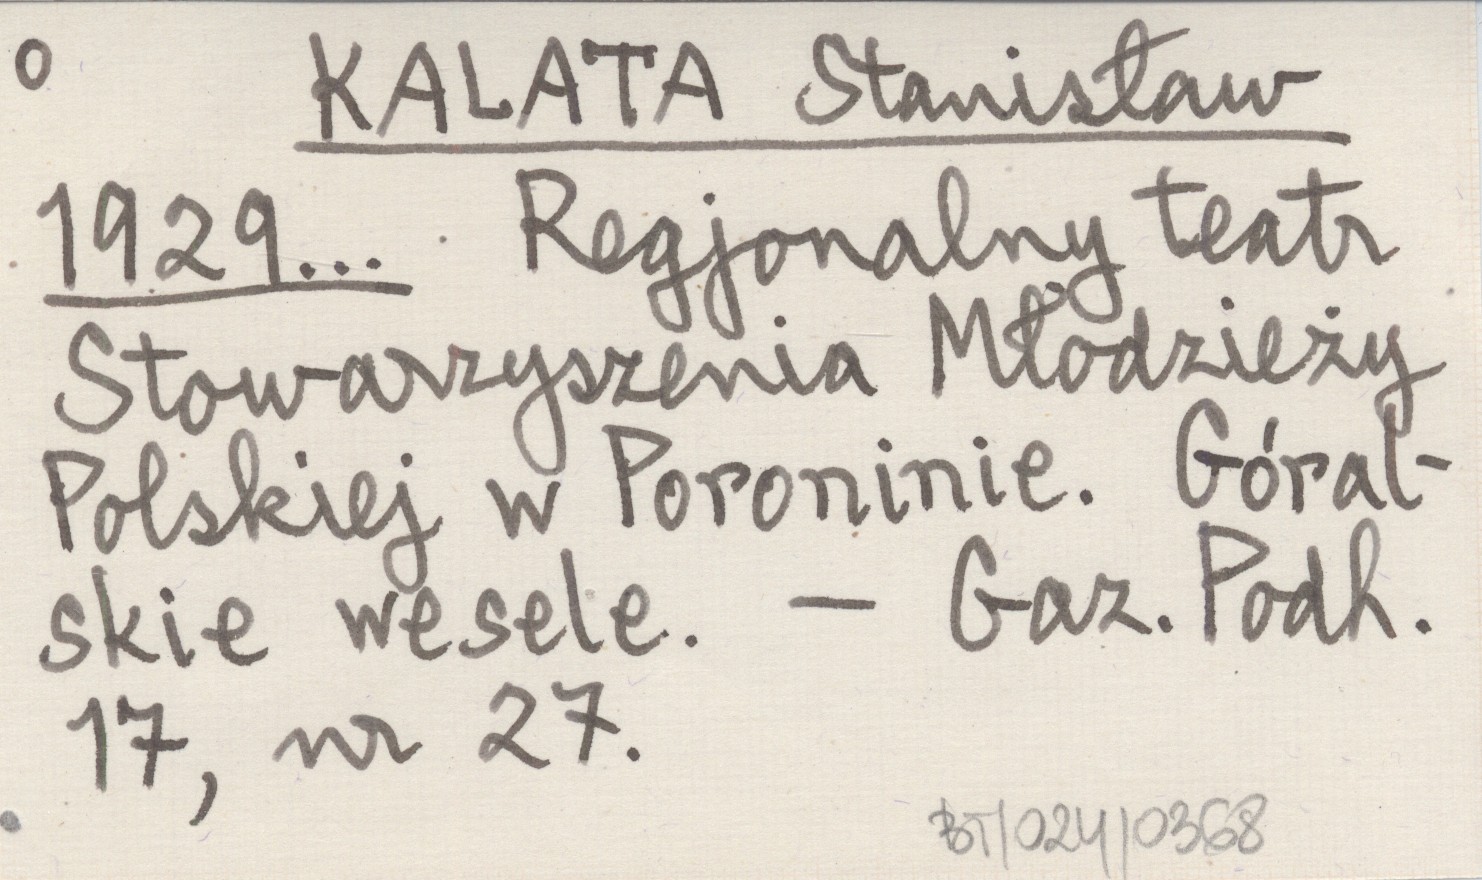 o KALATA Stanisław
1929... Regjonalny teatr
Stowarzyszenia Młodzieży
Polskiej w Poroninie. Góral-
skie wesele. — Gaz. Podh.
17, nr 27.
BT/024/0368